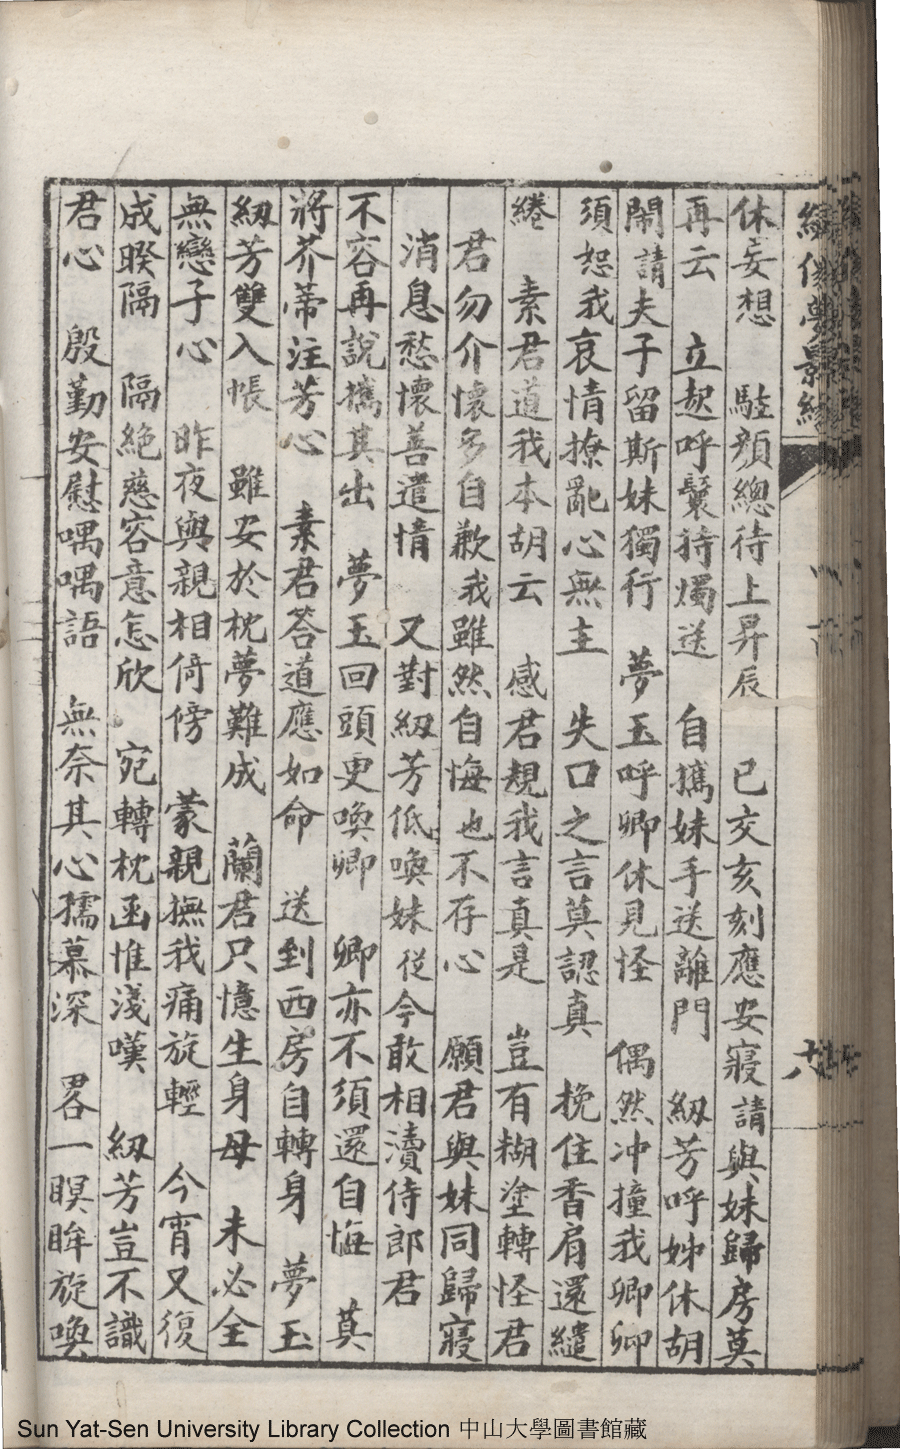 休妄想　駐顏總待上昇辰　已交亥刻應安寢請與妹歸房莫
再云　立起呼鬟持燭送　自攜妹手送離門　紉芳呼姊休胡
鬧請夫子留斯妹獨行　夢玉呼卿休見怪　偶然冲撞我卿卿
須恕我哀情撩亂心無主　失口之言莫認真　挽住香肩還繾
綣　素君道我本胡云　感君規我言真是　豈有糊塗轉怪君
君勿介懷多自歉我雖然自悔也不存心　願君與妹同歸寢
消息愁懷善遣情　又對紉芳低喚妹從今敢相瀆侍郎君
不容再說攜其出　夢玉回頭更喚卿　卿亦不須還自悔　莫
將芥蒂注芳心　素君答道應如命　送到西房自轉身　夢玉
紉芳雙入帳　雖安於枕夢難成　蘭君只憶生身母　未必全
無戀子心　昨夜與親相倚傍　蒙親撫我痛旋輕　今宵又復
成暌隔　隔絶慈容意怎欣　宛轉枕函惟淺嘆　紉芳豈不識
君心　殷勤安慰喁喁語　無奈其心孺慕深　畧一瞑眸旋喚
Sun Yat-Sen University Library Collection 中山大學圖書館藏